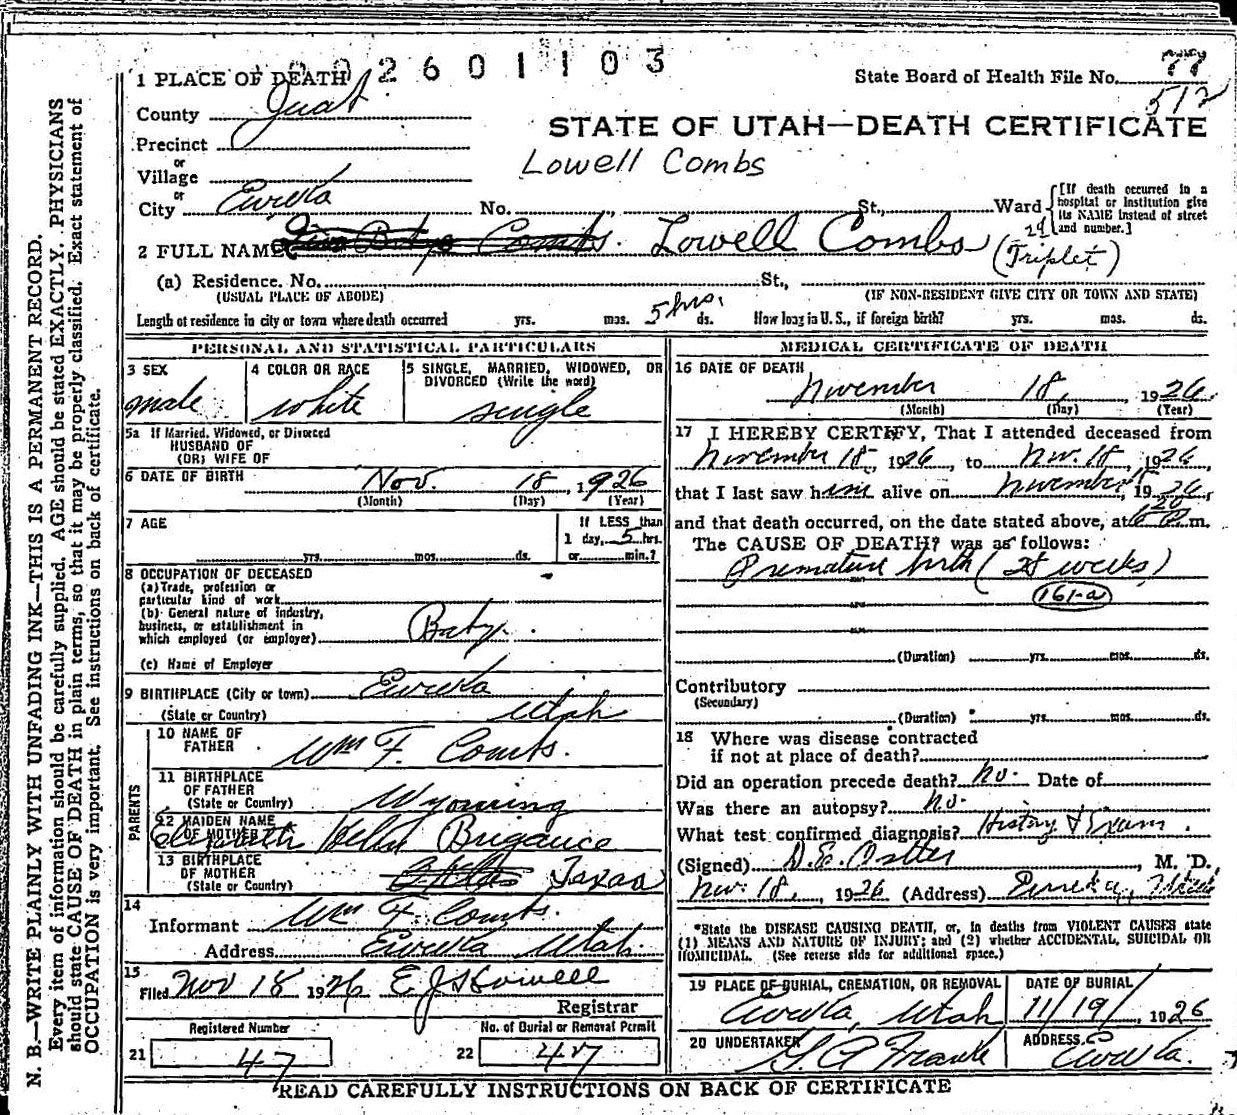 002601103
1 PLACE OF DEATH
State Board of Health File No. 77
512
County Juab
STATE OF UTAH—DEATH CERTIFICATE
Precinct
or
Village
Lowell Combs
or
City Eureka No. St., Ward
[If death occurred in a hospital or institution give its NAME instead of street and number.]
2 FULL NAME Combs. Lowell Combs
(Triplet)
(a) Residence. No. St.,
(USUAL PLACE OF ABODE) (IF NON-RESIDENT GIVE CITY OR TOWN AND STATE)
Length of residence in city or town where death occurred yrs. mos. 5 hrs. ds. How long in U. S., if foreign birth? yrs. mos. ds.
PERSONAL AND STATISTICAL PARTICULARS
3 SEX
male
4 COLOR OR RACE
white
5 SINGLE, MARRIED, WIDOWED, OR DIVORCED (Write the word)
single
5a If Married, Widowed, or Divorced
HUSBAND OF
(OR) WIFE OF
6 DATE OF BIRTH Nov. 18, 1926
(Month) (Day) (Year)
7 AGE
yrs. mos. ds.
If LESS than
1 day, 5 hrs.
or min.?
8 OCCUPATION OF DECEASED
(a) Trade, profession or
particular kind of work
(b) General nature of industry,
business, or establishment in
which employed (or employer) Baby.
(c) Name of Employer
9 BIRTHPLACE (City or town) Eureka
(State or Country) Utah
PARENTS
10 NAME OF
FATHER Wm F. Combs.
11 BIRTHPLACE
OF FATHER
(State or Country) Wyoming
12 MAIDEN NAME
OF MOTHER Elizabeth Brigance
13 BIRTHPLACE
OF MOTHER
(State or Country) Texas
14
Informant Wm F. Combs.
Address Eureka Utah.
15
Filed Nov 18 1926 E J Howell
Registrar
Registered Number
21 47
No. of Burial or Removal Permit
22 47
MEDICAL CERTIFICATE OF DEATH
16 DATE OF DEATH
November 18, 1926
(Month) (Day) (Year)
17 I HEREBY CERTIFY, That I attended deceased from
November 18, 1926, to Nov. 18, 1926,
that I last saw him alive on November 18 1926,
and that death occurred, on the date stated above, at P m.
The CAUSE OF DEATH* was as follows:
Premature birth ( weeks)
161-a
(Duration) yrs. mos. ds.
Contributory
(Secondary)
(Duration) yrs. mos. ds.
18 Where was disease contracted
if not at place of death?
Did an operation precede death? No. Date of
Was there an autopsy? No.
What test confirmed diagnosis? History & Exam.
(Signed) , M. D.
Nov. 18, 1926 (Address) Eureka, Utah
*State the DISEASE CAUSING DEATH, or, in deaths from VIOLENT CAUSES state
(1) MEANS AND NATURE OF INJURY; and (2) whether ACCIDENTAL, SUICIDAL OR
HOMICIDAL. (See reverse side for additional space.)
19 PLACE OF BURIAL, CREMATION, OR REMOVAL
Eureka, Utah
DATE OF BURIAL
11/19/, 1926
20 UNDERTAKER
ADDRESS
Eureka.
READ CAREFULLY INSTRUCTIONS ON BACK OF CERTIFICATE
N. B.—WRITE PLAINLY WITH UNFADING INK—THIS IS A PERMANENT RECORD.
Every item of information should be carefully supplied. AGE should be stated EXACTLY. PHYSICIANS
should state CAUSE OF DEATH in plain terms, so that it may be properly classified. Exact statement of
OCCUPATION is very important. See instructions on back of certificate.